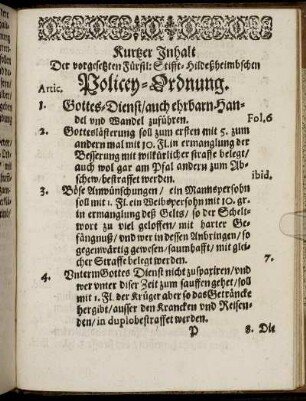 Kurtzer Inhalt
Der vorgesetzten Fürstl: Stifft-Hildeßheimbschen
Policey-Ordnung.
Artic.
1. Gottes-Dienst/auch ehrbarn Han-
del und Wandel zuführen. Fol,6
2. Gotteslästerung soll zum ersten mit 5. zum
andern mal mit 10. Fl. in ermanglung der
Besserung mit wilkürlicher straffe belegt/
auch wol gar am Pfal andern zum Ab-
schew/bestraffet werden. ibid,
3. Böse Anwünschungen/ ein Mannspersohn
soll mit 1. Fl. ein Weibspersohn mit 10. gr.
in ermanglung deß Gelts/ so der Schelt-
wort zu viel geloffen/mit harter Ge-
fängnuß/ und wer in dessen Anbringen/ so
gegenwärtig gewesen/saumhafft/mit glei-
cher Straffe belegt werden. 7.
4. Unterm Gottes Dienst nicht zuspatziren/und
wer unter diser Zeit zum sauffen gehet/soll
mit 1. Fl. der Krüger aber so das Geträncke
hergibt/ausser den Krancken und Reisen-
den/in duplo bestraffet werden.
P 8. Die